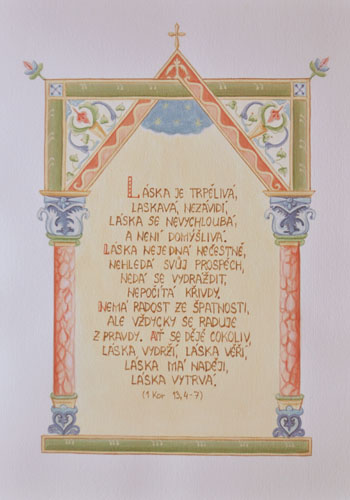 LÁSKA JE TRPĚLIVÁ,
LASKAVÁ, NEZÁVIDÍ,
LÁSKA SE NEVYCHLOUBÁ,
A NENÍ DOMÝŠLIVÁ.
LÁSKA NEJEDNÁ NEČESTNĚ,
NEHLEDÁ SVŮJ PROSPĚCH,
NEDÁ SE VYDRÁŽDIT,
NEPOČÍTÁ KŘIVDY.
NEMÁ RADOST ZE ŠPATNOSTI,
ALE VŽDYCKY SE RADUJE
Z PRAVDY. AŤ SE DĚJE COKOLIV,
LÁSKA VYDRŽÍ, LÁSKA VĚŘÍ,
LÁSKA MÁ NADĚJI,
LÁSKA VYTRVÁ.
(1 Kor 13,4-7)